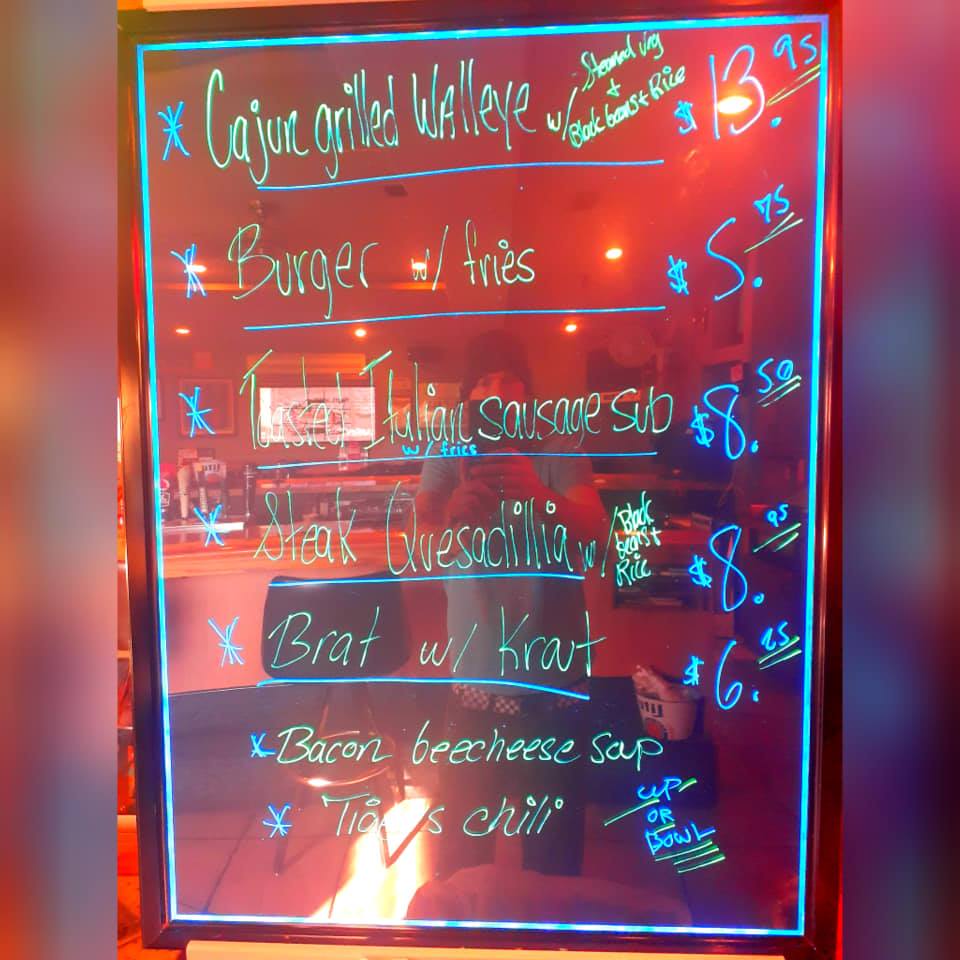 * Cajun grilled Walleye w/ Steamed veg + Black beans + Rice $13.95
* Burger w/ fries $5.75
* Toasted Italian sausage sub $8.50
w/ fries
* Steak Quesadillia w/ Black beans + Rice $8.95
* Brat w/ Kraut $6.25
* Bacon beecheese soup
* chili
CUP
OR
BOWL